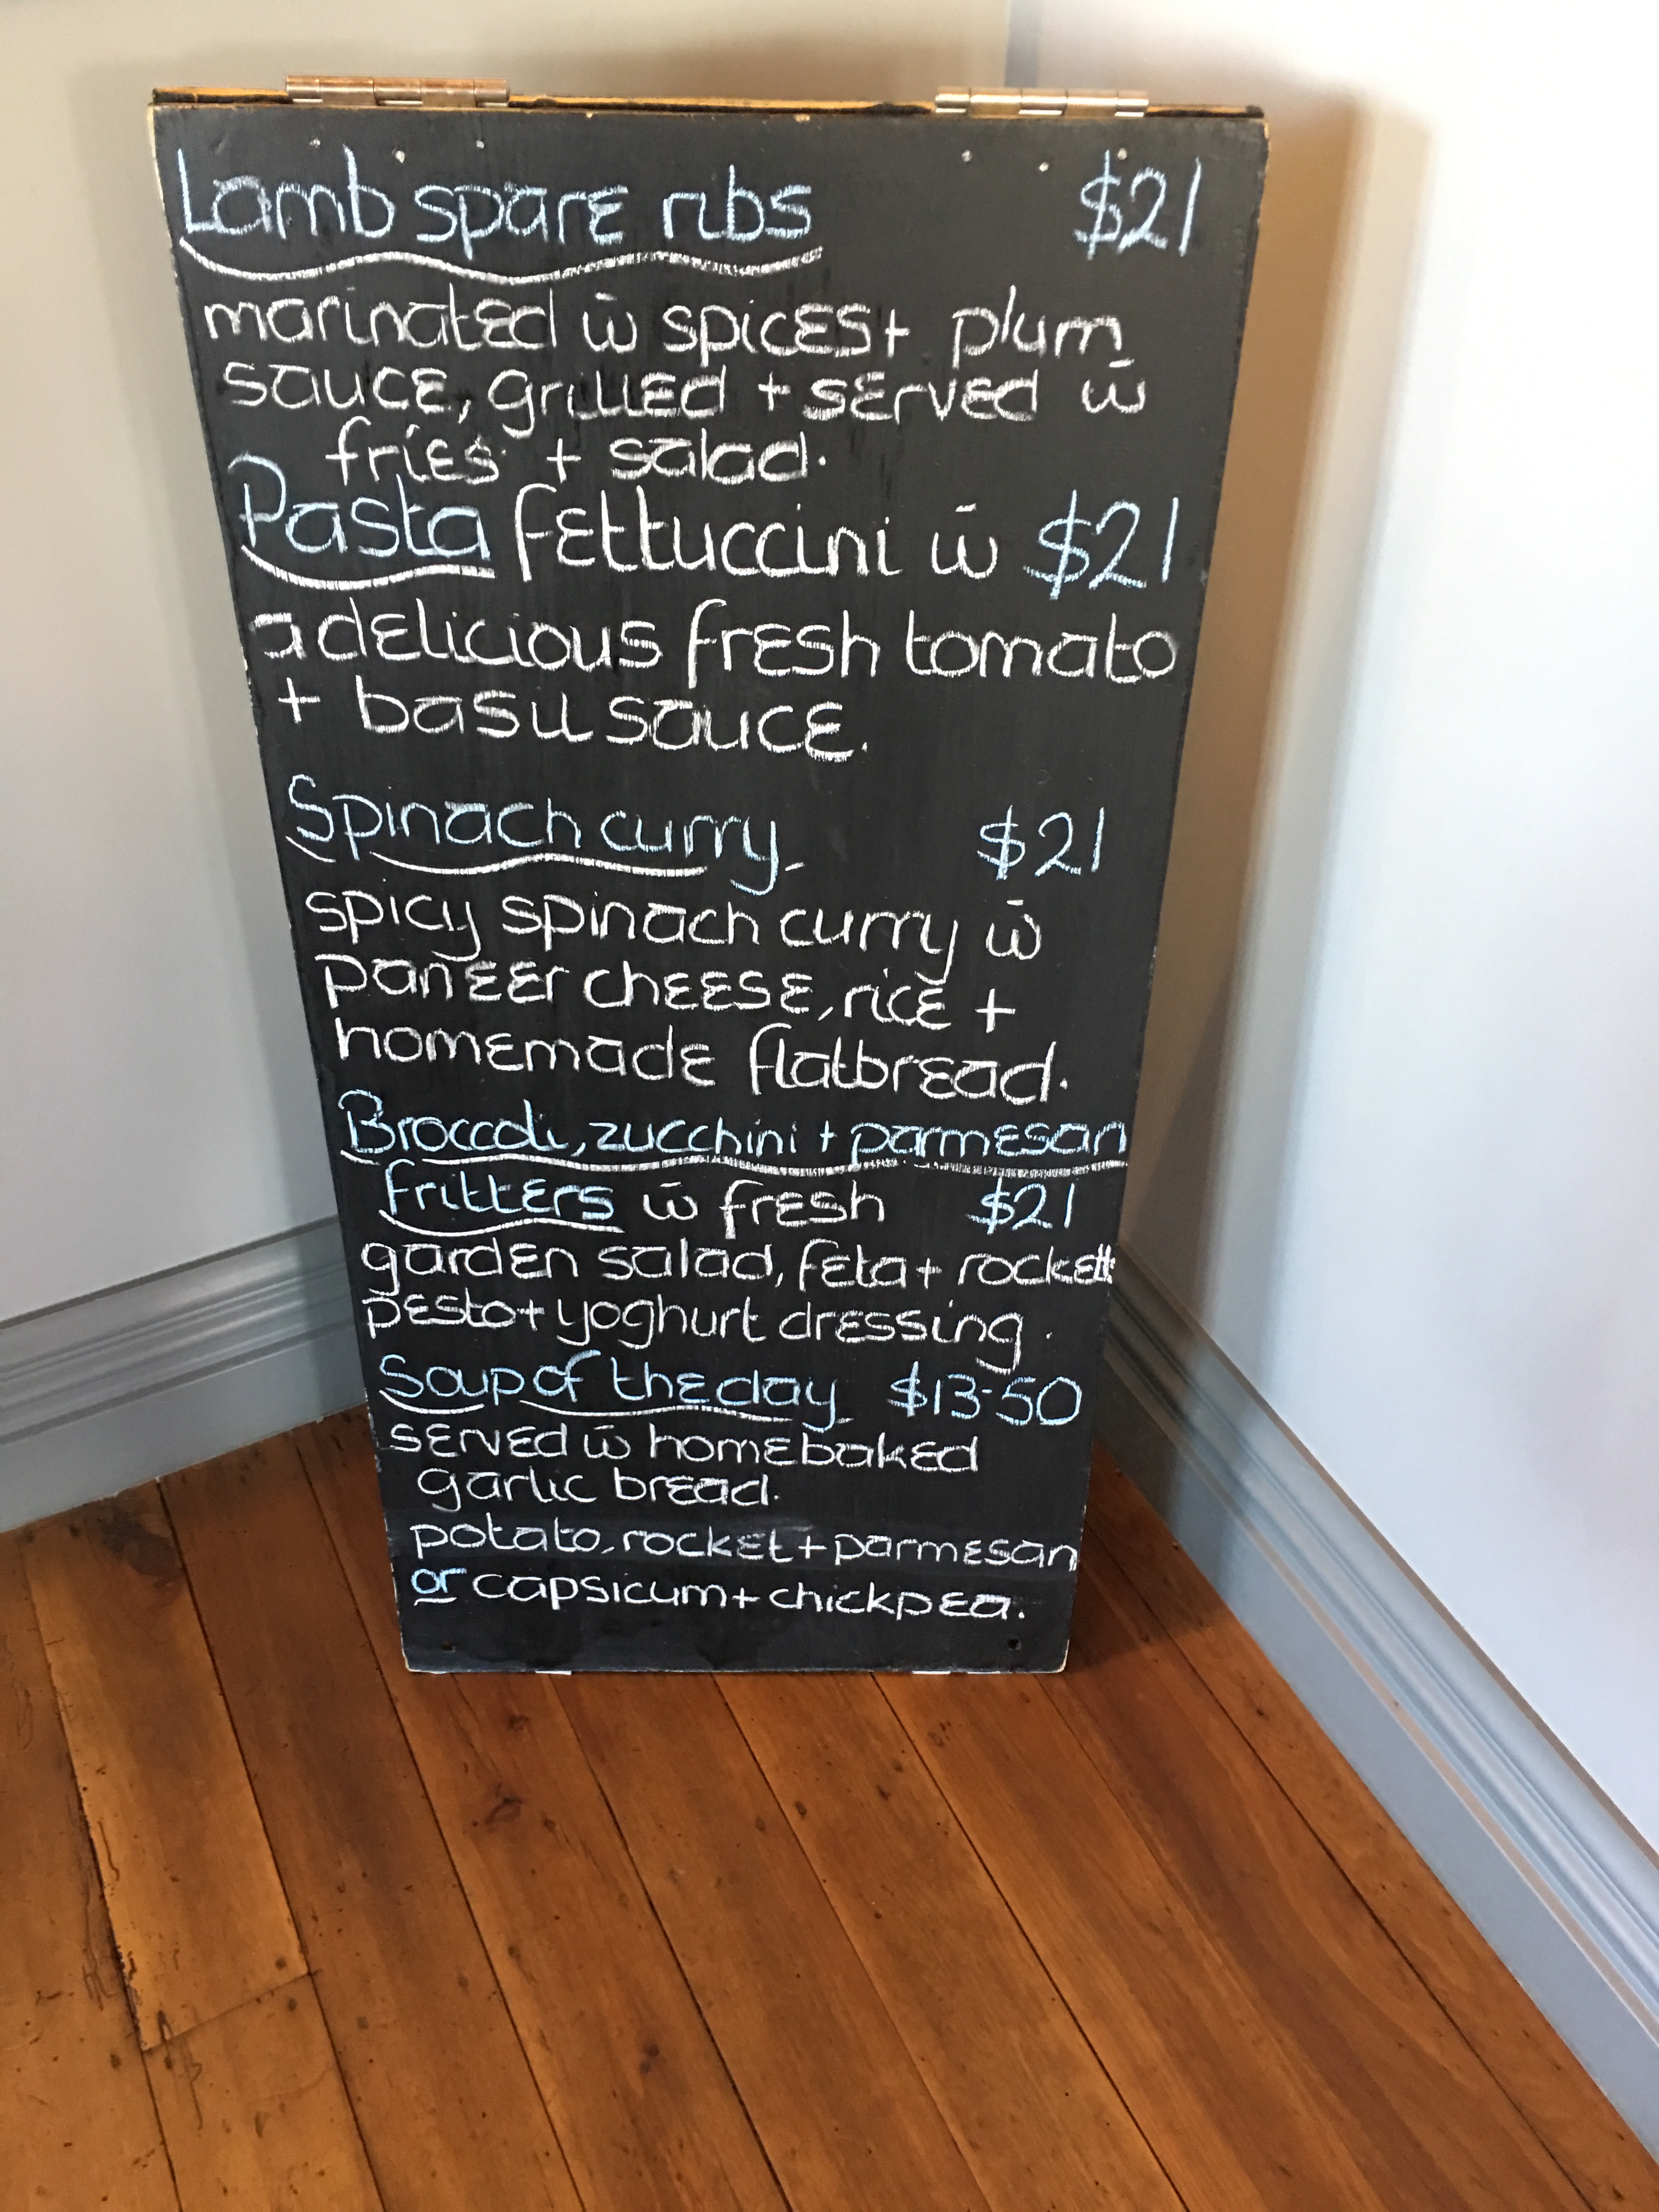 Lamb spare ribs $21
marinated w̄ spices + plum
sauce, grilled + served w̄
fries + salad.
Pasta fettuccini w̄ $21
a delicious fresh tomato
+ basil sauce.
Spinach curry $21
spicy spinach curry w̄
paneer cheese, rice +
homemade flatbread.
Broccoli, zucchini + parmesan
fritters w̄ fresh $21
garden salad, feta + rocket
pesto + yoghurt dressing.
Soup of the day $13-50
served w̄ homebaked
garlic bread.
potato, rocket + parmesan
or capsicum + chickpea.